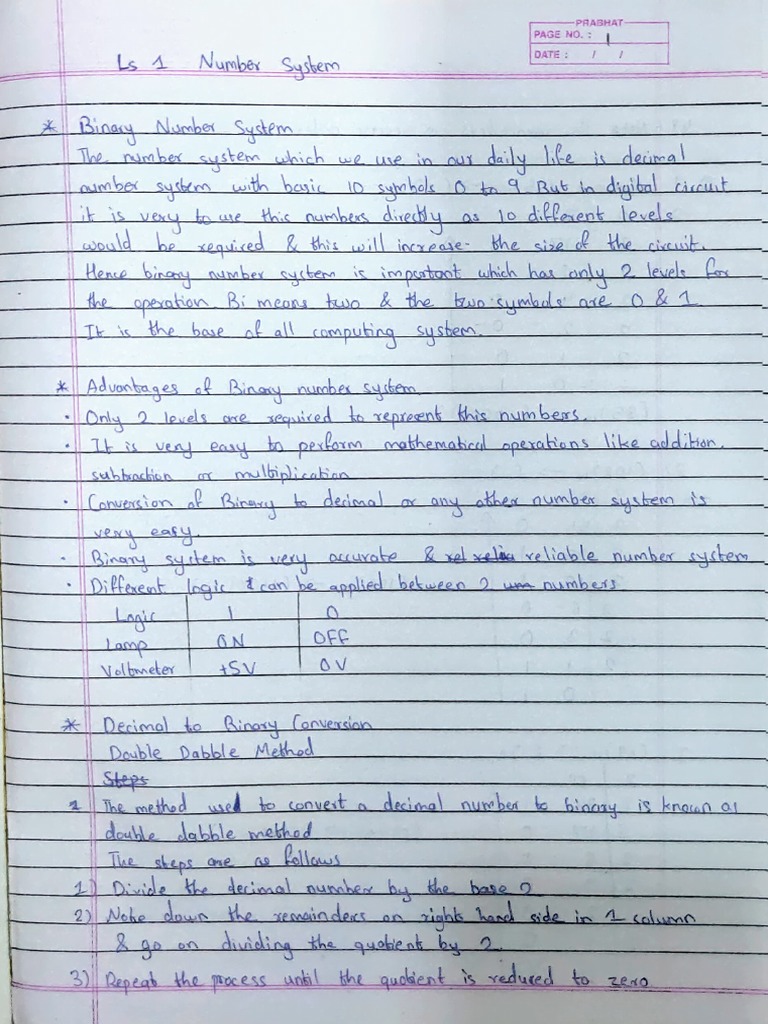 PRABHAT
PAGE NO. : 1
DATE : / /
Ls 1 Number System
* Binary Number System
The number system which we use in our daily life is decimal
number system with basic 10 symbols 0 to 9 But in digital circuit
it is very to use this numbers directly as 10 different levels
would be required & this will increase the size of the circuit.
Hence binary number system is important which has only 2 levels for
the operation. Bi means two & the two symbols are 0 & 1
It is the base of all computing system.
* Advantages of Binary number system
· Only 2 levels are required to represent this numbers.
· It is very easy to perform mathematical operations like addition,
subtraction or multiplication
· Conversion of Binary to decimal or any other number system is
very easy.
· Binary system is very accurate & reliable number system
· Different logic can be applied between 2 numbers
Logic 1 0
Lamp ON OFF
Voltmeter +5V 0V
* Decimal to Binary Conversion
Double Dabble Method
Steps
The method used to convert a decimal number to binary is known as
double dabble method
The steps are as follows
1) Divide the decimal number by the base 2
2) Note down the remainders on rights hand side in 1 column
& go on dividing the quotient by 2.
3) Repeat the process until the quotient is reduced to zero